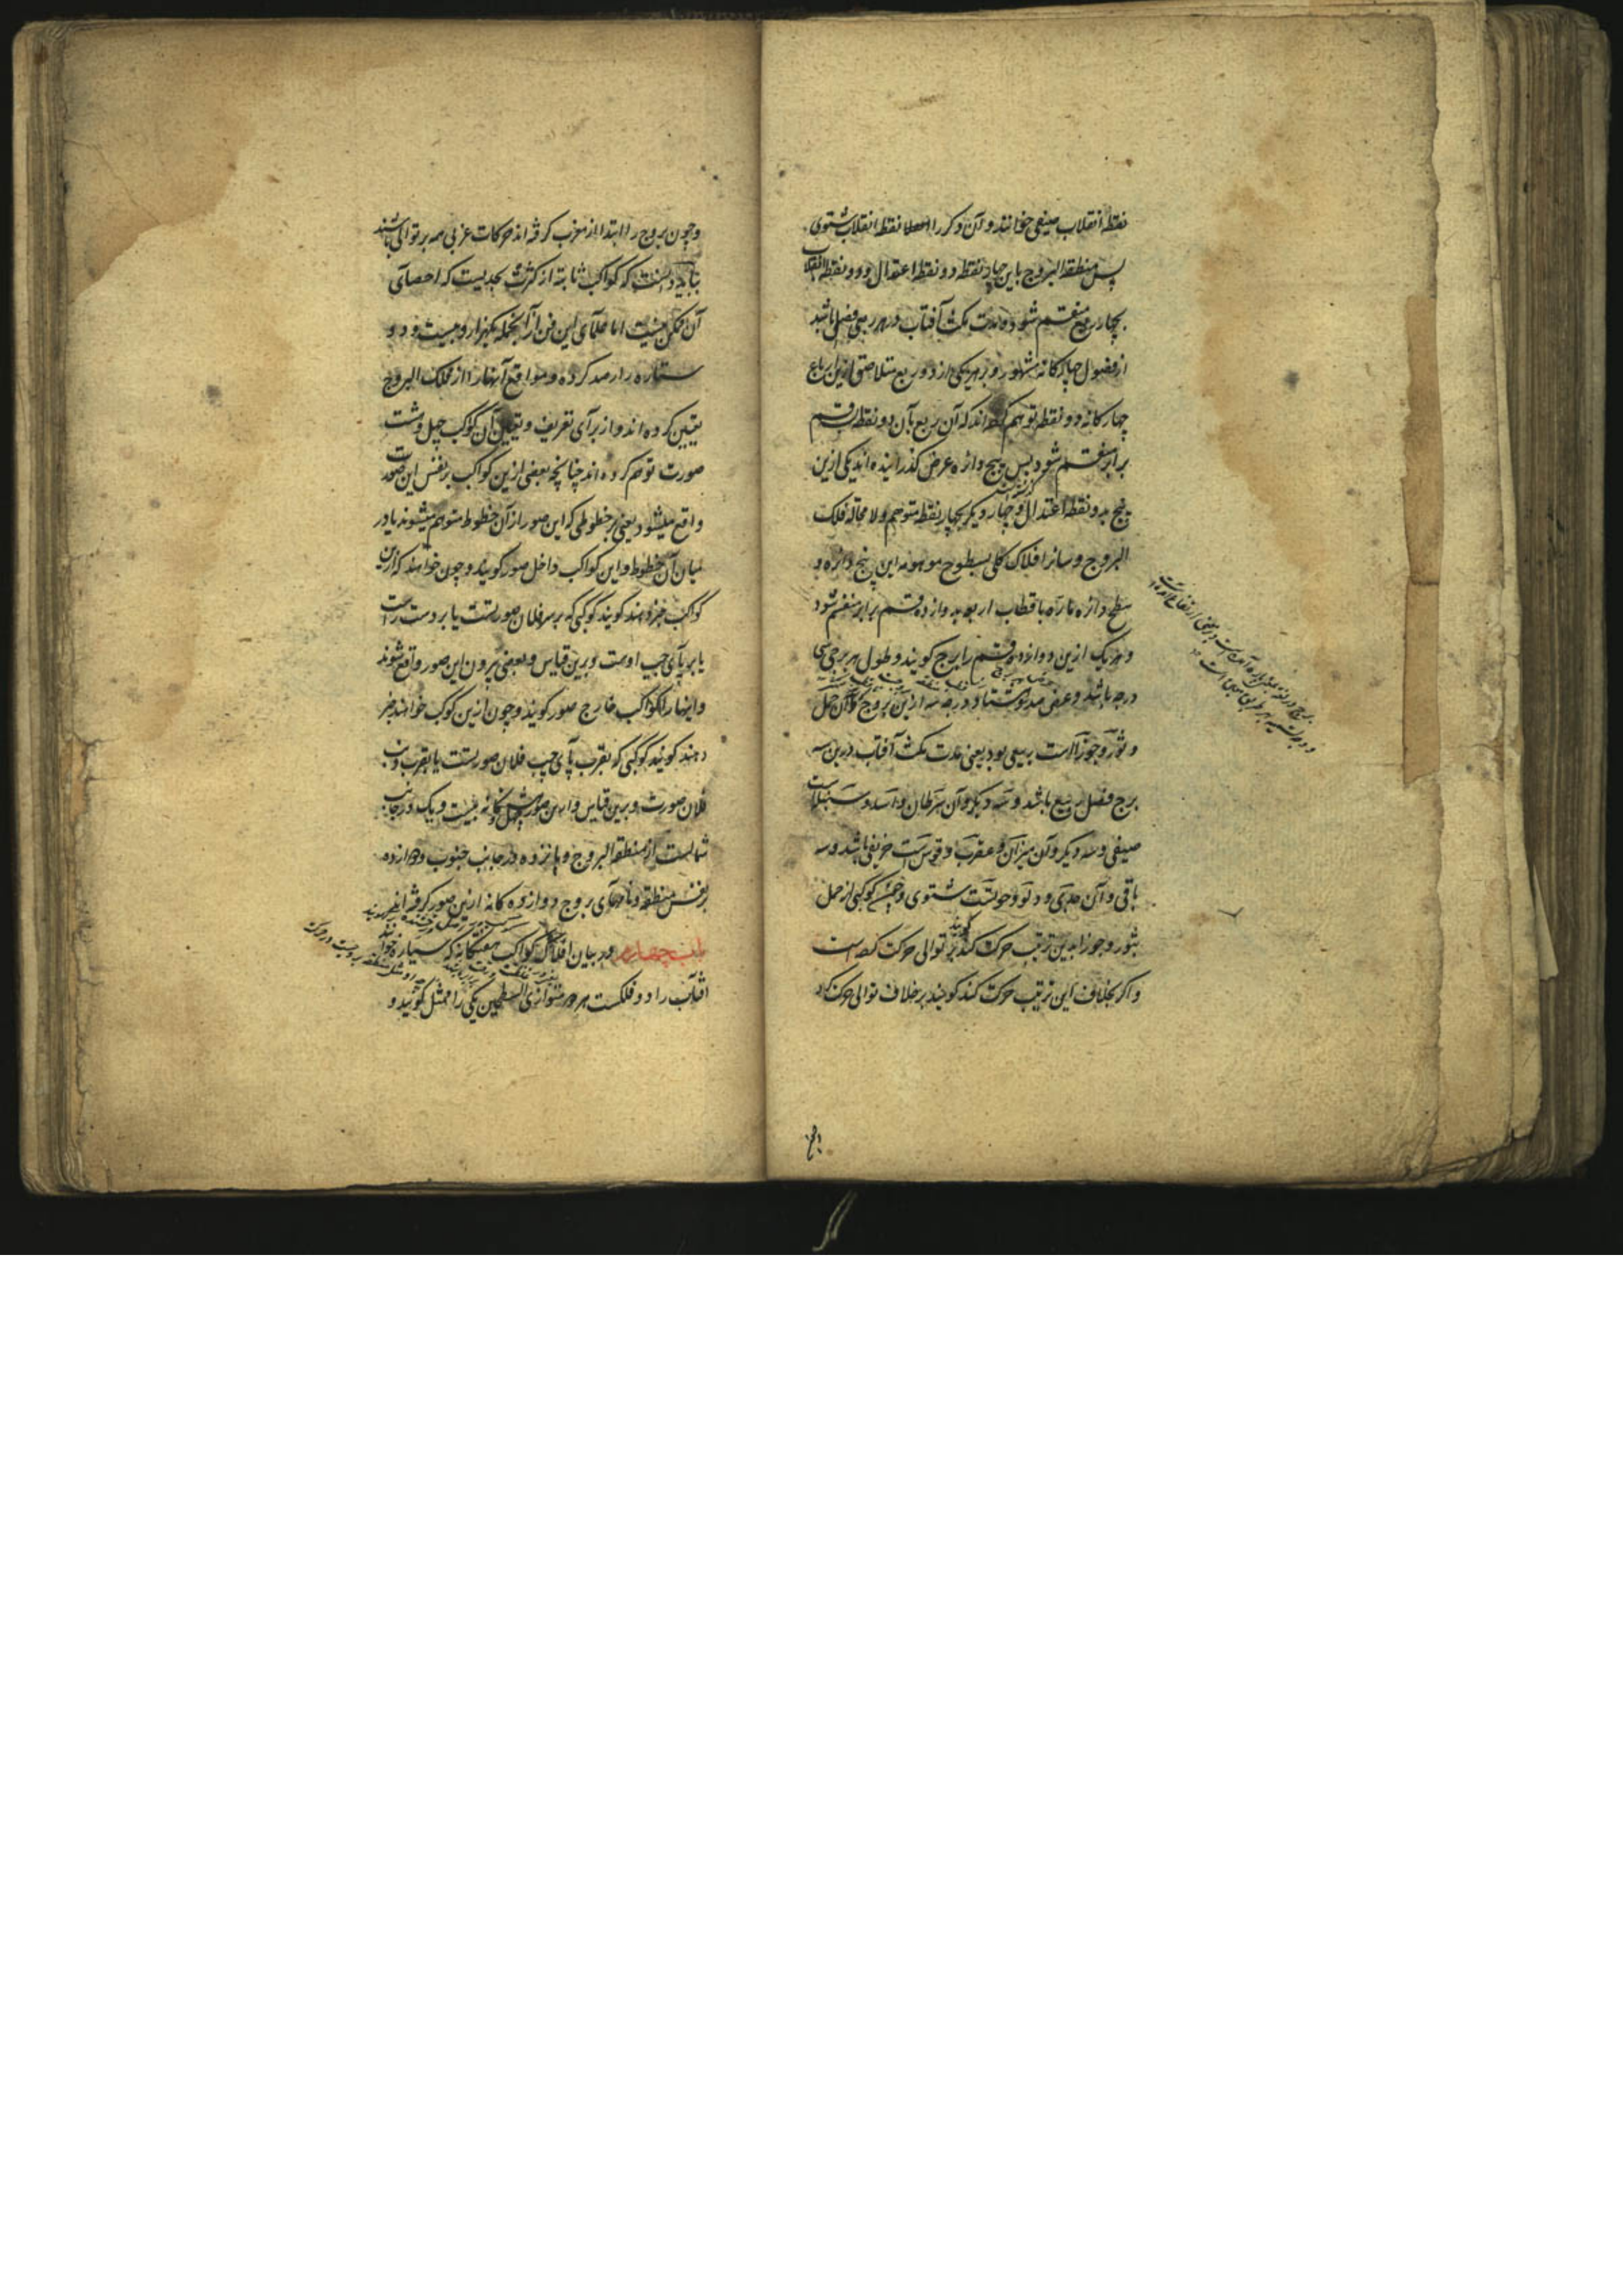 نقطه انقلاب صیفی خوانند و آن دکر را نقطه انقلاب شتوی
پس منطقه البروج باین چهار نقطه دو نقطه اعتدال و دو نقطه انقلاب
بچهار ربع منقسم شود و مدت مکث آفتاب در هر ربعی فصلی باشد
از فصول چهارکانه مشهور و بر هر یکی از دو ربع متلاصق ازین ارباع
چهارکانه دو نقطه توهم کرده اند که آن ربع بآن دو نقطه بسه قسم
برابر منقسم شود پس پنج دائره عرض کذرانیده اند یکی ازین
پنج بدو نقطه اعتدال و چهار دیکر بچهار نقطه متوهم و لا محاله فلک
البروج و سائر افلاک کلی بسطوح موهومه این پنج دائره و
سطح دائره ماره باقطاب اربعه بدوازده قسم برابر منقسم شود
و هر یک ازین دوازده قسم را برج کویند و طول هر برجی سی
درجه باشد و عرض صد و هشتاد درجه سه ازین بروج که آن حمل
و ثور و جوزا است ربیعی بود یعنی مدت مکث آفتاب درین سه
برج فصل ربیع باشد و سه دیکر و آن سرطان و اسد و سنبله است
صیفی و سه دیکر و آن میزان و عقرب و قوس است خریفی باشد و سه
باقی و آن جدی و دلو و حوتست شتوی و چون کوکبی از حمل
بثور و جوزا بدین ترتیب حرکت کند کویند بر توالی حرکت کرده است
و اکر بخلاف این ترتیب حرکت کند کویند بر خلاف توالی حرکت کرد
و چون بروج را ابتدا از مغرب کرفته اند حرکات غربی همه بر توالی باشند
بباید دانست که کواکب ثابته از کثرت بحدیست که احصای
آن ممکن نیست اما علمای این فن از آنجمله یکهزار و بیست و دو
ستاره را رصد کرده و مواقع آنها را از فلک البروج
تعیین کرده اند و از برای تعریف و تعیین آن کوکب چهل و هشت
صورت توهم کرده اند چنانچه بعضی ازین کواکب بر نفس این صورت
واقع میشود یعنی بر خطوطی که این صور از آن خطوط متوهم میشوند یا در
میان آن خطوط و این کواکب را داخل صور کویند و چون خواهند که ازین
کواکب خبر دهند کویند کوکبی که بر سر فلان صورتست یا بر دست راست
یا بر پای چپ اوست و برین قیاس و بعضی بیرون این صور واقع شوند
و اینها را کواکب خارج صور کویند و چون ازین کوکب خواهند خبر
دهند کویند کوکبی که بقرب پای چپ فلان صورتست یا بقرب
فلان صورت و برین قیاس و ازین صور چهل و هشتکانه بیست و یک در جانب
شمالست از منطقه البروج و پانزده در جانب جنوب و دوازده
بر نفس منطقه و نامهای بروج دوازده کانه ازین صور کرفته اند
باب چهارم در بیان افلاک کواکب هفتکانه که سیاره خوانند
آفتاب را دو فلکست هر دو متوازی السطحین یکی را ممثل کویند و